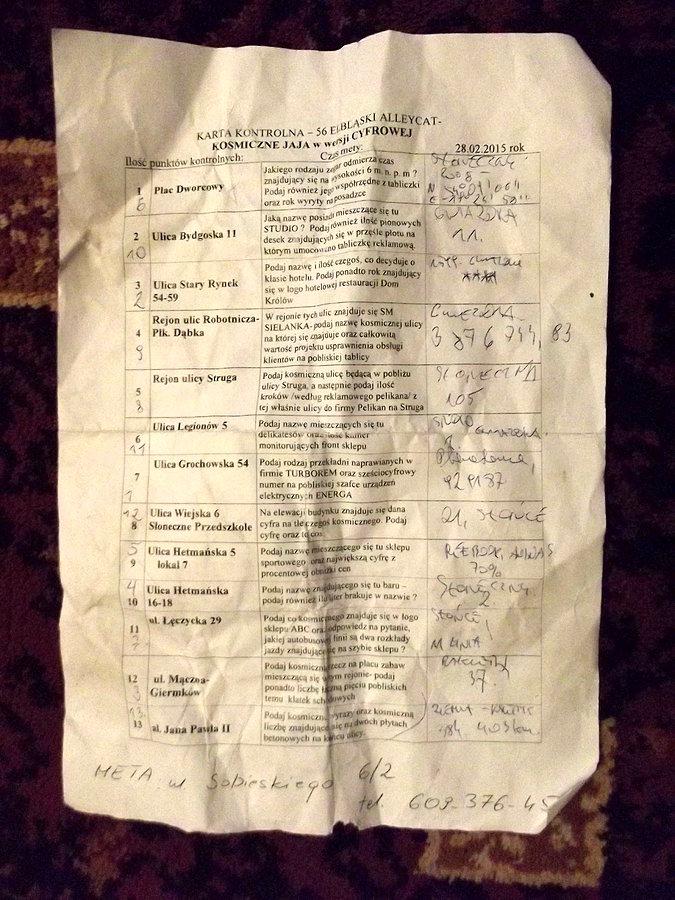 KARTA KONTROLNA – 56 ELBLĄSKI ALLEYCAT-
KOSMICZNE JAJA w wersji CYFROWEJ
28.02.2015 rok
Ilość punktów kontrolnych:
Czas mety:
1
6
Plac Dworcowy
Jakiego rodzaju zegar odmierza czas
znajdujący się na wysokości 6 m. n. p. m ?
Podaj również jego współrzędne z tabliczki
oraz rok wyryty na posadzce
SŁONECZNY
2
10
Ulica Bydgoska 11
Jaką nazwę posiada mieszczące się tu
STUDIO ? Podaj również ilość pionowych
desek znajdujących się w przęśle płotu na
którym umocowano tabliczkę reklamową.
GWIAZDKA
11.
3
2
Ulica Stary Rynek
54-59
Podaj nazwę i ilość czegoś, co decyduje o
klasie hotelu. Podaj ponadto rok znajdujący
się w logo hotelowej restauracji Dom
Królów
4
9
Rejon ulic Robotnicza-
Płk. Dąbka
W rejonie tych ulic znajduje się SM
SIELANKA-podaj nazwę kosmicznej ulicy
na której się znajduje oraz całkowitą
wartość projektu usprawnienia obsługi
klientów na pobliskiej tablicy
3 876 744, 83
5
8
Rejon ulicy Struga
Podaj kosmiczną ulicę będącą w pobliżu
ulicy Struga, a następnie podaj ilość
kroków /według reklamowego pelikana/ z
tej właśnie ulicy do firmy Pelikan na Struga
SŁONECZNA
105
6
11
Ulica Legionów 5
Podaj nazwę mieszczących się tu
delikatesów oraz ilość kamer
monitorujących front sklepu
7
1
Ulica Grochowska 54
Podaj rodzaj przekładni naprawianych w
firmie TURBOREM oraz sześciocyfrowy
numer na pobliskiej szafce urządzeń
elektrycznych ENERGA
929187
12
8
Ulica Wiejska 6
Słoneczne Przedszkole
Na elewacji budynku znajduje się dana
cyfra na tle czegoś kosmicznego. Podaj
cyfrę oraz to coś
21, SŁOŃCE
5
9
Ulica Hetmańska 5
lokal 7
Podaj nazwę mieszczącego się tu sklepu
sportowego oraz największą cyfrę z
procentowej obniżki cen
REEBOK, ADIDAS
70%
4
10
Ulica Hetmańska
16-18
Podaj nazwę znajdującego się tu baru –
podaj również ilu liter brakuje w nazwie ?
SŁONECZNY
2
11
7
ul. Łęczycka 29
Podaj co kosmicznego znajduje się w logo
sklepu ABC oraz odpowiedz na pytanie,
jakiej autobusowej linii są dwa rozkłady
jazdy znajdujące się na szybie sklepu ?
SŁOŃCE,
12
3
ul. Mączna-
Giermków
Podaj kosmiczną rzecz na placu zabaw
mieszczącą się w tym rejonie- podaj
ponadto liczbę łączną pięciu pobliskich
temu klatek schodowych
37.
13.
13
al. Jana Pawła II
Podaj kosmiczne wyrazy oraz kosmiczną
liczbę znajdujące się na dwóch płytach
betonowych na końcu ulicy.
META: ul Sobieskiego 6/2
tel. 609-376-45